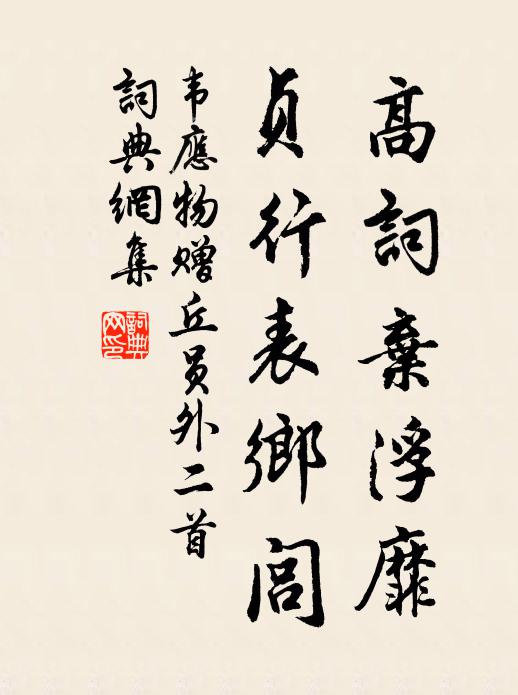 高詞棄浮靡
貞行表鄉閭
韦應物赠丘员外二首
詞典網集
詞典
网印